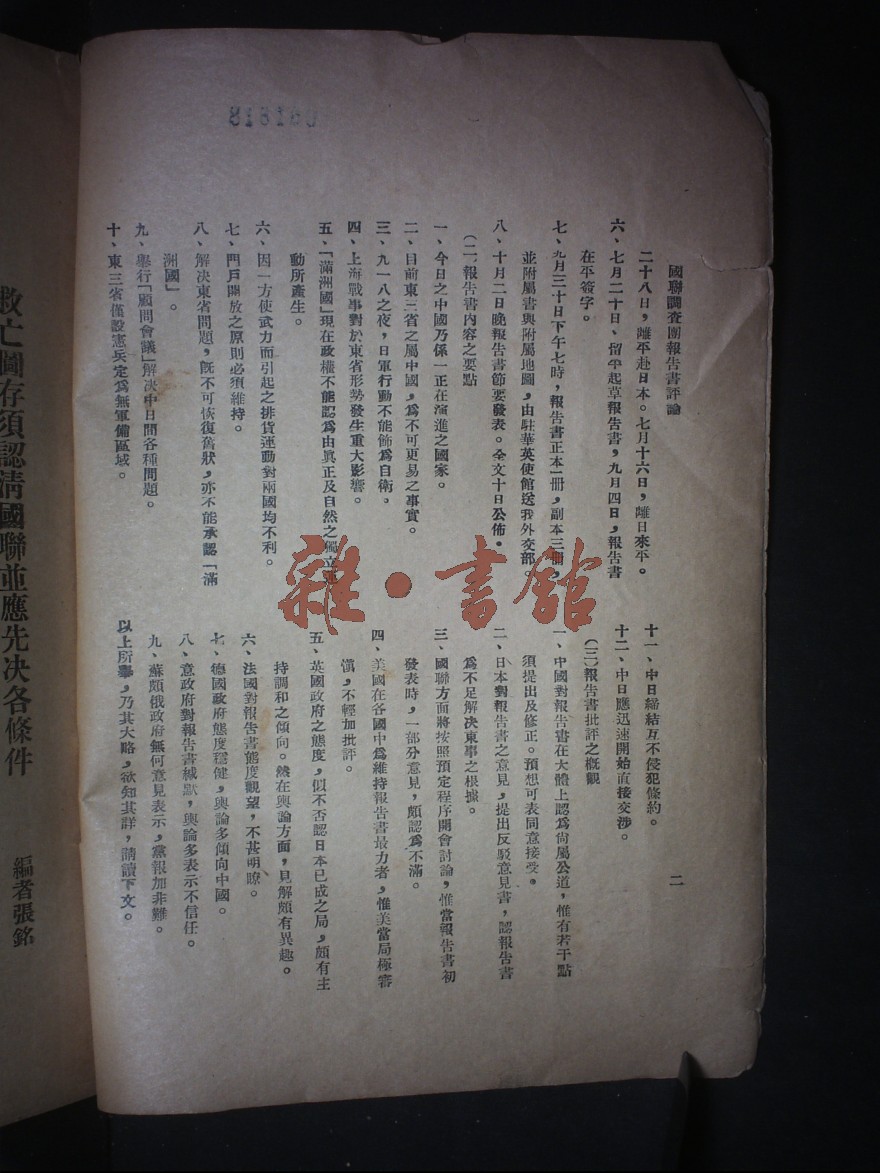 國聯調查團報告書評論
二
二十八日，離平赴日本。七月十六日，離日來平。
六、七月二十日、留平起草報告書，九月四日，報告書
在平簽字。
七、九月三十日下午七時，報告書正本一冊，副本三冊，
並附屬書與附屬地圖，由駐華英使館送我外交部。
八、十月二日晚報告書節要發表。全文十日公佈。
(二)報告書內容之要點
一、今日之中國乃係一正在演進之國家。
二、目前東三省之屬中國，爲不可更易之事實。
三、九一八之夜，日軍行動不能飾爲自衛。
四、上海戰事對於東省形勢發生重大影響。
五、「滿洲國」現在政權不能認爲由眞正及自然之獨立運
動所產生。
六、因一方使武力而引起之排貨運動對兩國均不利。
七、門戶開放之原則必須維持。
八、解決東省問題，旣不可恢復舊狀，亦不能承認「滿
洲國」。
九、舉行「顧問會議」解決中日間各種問題。
十、東三省僅設憲兵定爲無軍備區域。
十一、中日締結互不侵犯條約。
十二、中日應迅速開始直接交涉。
(三)報告書批評之概觀
一、中國對報告書在大體上認爲尙屬公道，惟有若干點
須提出及修正。預想可表同意接受。
二、日本對報告書之意見，提出反駁意見書，認報告書
爲不足解決東事之根據。
三、國聯方面將按照預定程序開會討論，惟當報告書初
發表時，一部分意見，頗認爲不滿。
四、美國在各國中爲維持報告書最力者，惟美當局極審
愼，不輕加批評。
五、英國政府之態度，似不否認日本已成之局，頗有主
持調和之傾向。然在輿論方面，見解頗有異趣。
六、法國對報告書態度觀望，不甚明瞭。
七、德國政府態度穩健，輿論多傾向中國。
八、意政府對報告書緘默，輿論多表示不信任。
九、蘇頗俄政府無何意見表示，黨報加非難。
以上所舉，乃其大略，欲知其詳，請讀下文。
救亡圖存須認淸國聯並應先決各條件
編者張銘
雜·書館